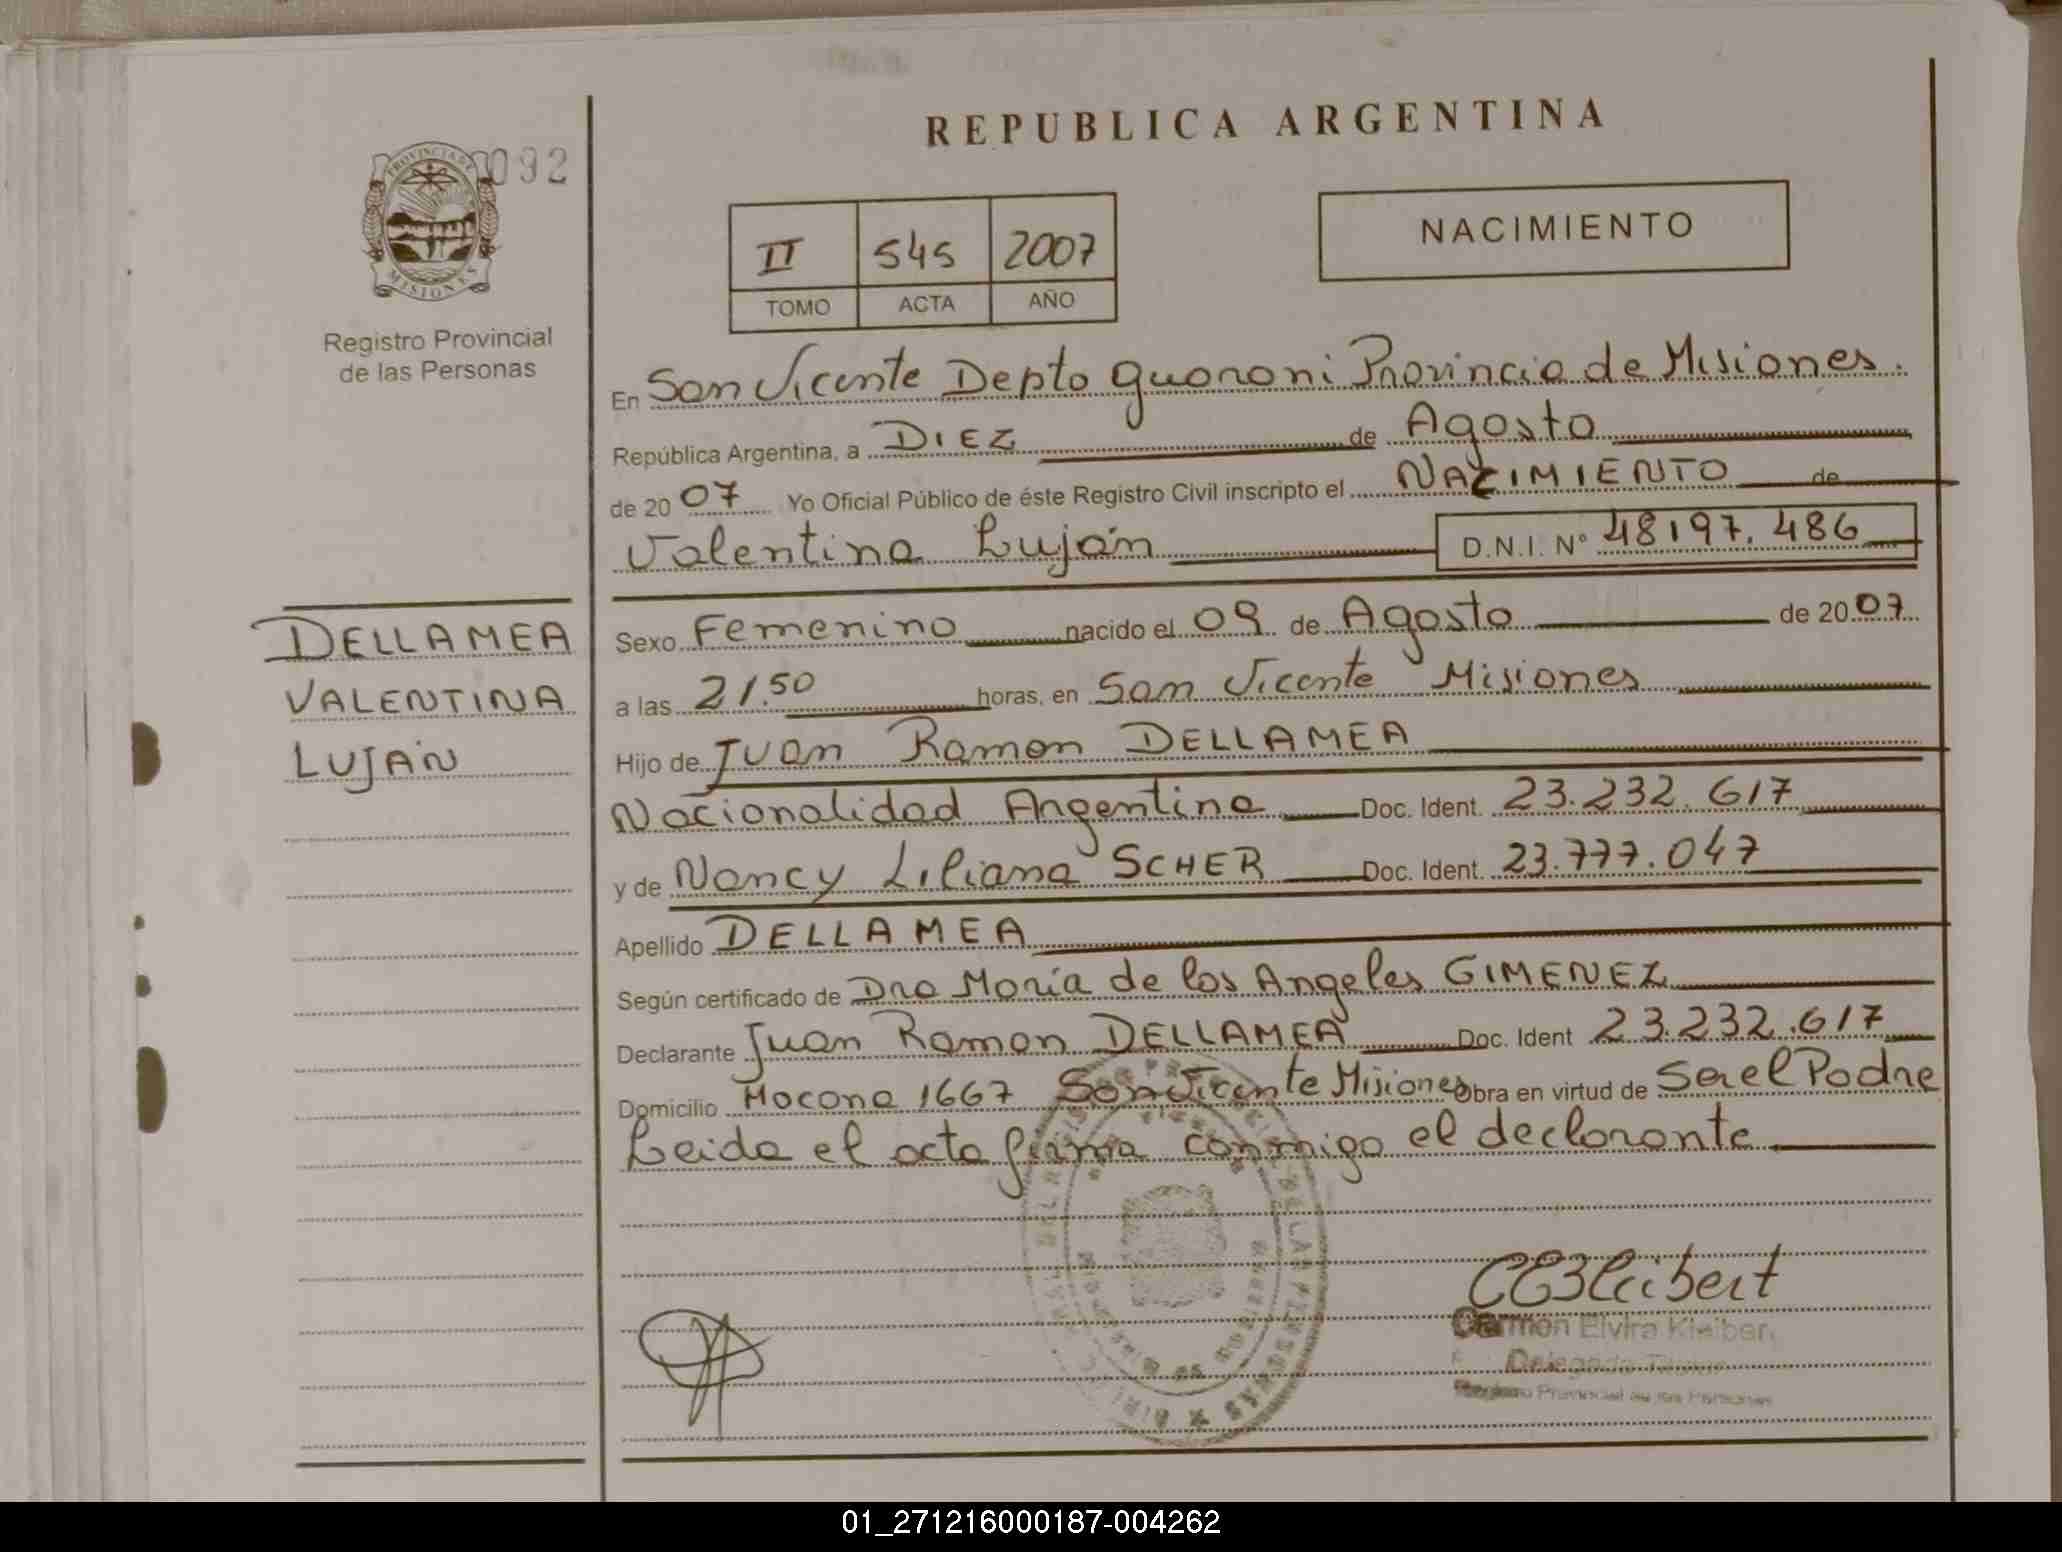 REPUBLICA ARGENTINA
092
PROVINCIA DE
MISIONES
Registro Provincial
de las Personas
II 545 2007
TOMO ACTA AÑO
NACIMIENTO
En San Vicente Depto guarani Provincia de Misiones.
República Argentina, a DIEZ de Agosto
de 2007 Yo Oficial Público de éste Registro Civil inscripto el NACIMIENTO de
Valentina Luján D.N.I. Nº 48197.486
DELLAMEA
VALENTINA
LUJÁN
Sexo Femenino nacido el 09 de Agosto de 2007
a las 21.50 horas, en San Vicente Misiones
Hijo de Juan Ramon DELLAMEA
Nacionalidad Argentina Doc. Ident. 23.232.617
y de Nancy Liliana SCHER Doc. Ident. 23.777.047
Apellido DELLAMEA
Según certificado de Dra María de los Angeles GIMENEZ
Declarante Juan Ramon DELLAMEA Doc. Ident 23.232.617
Domicilio Mocona 1667 San Vicente Misiones Obra en virtud de Ser el Padre
Leida el acta firma conmigo el declarante
CEKleibert
Carmen Elvira Kleiber
Delegada Titular
Registro Provincial de las Personas
01_271216000187-004262